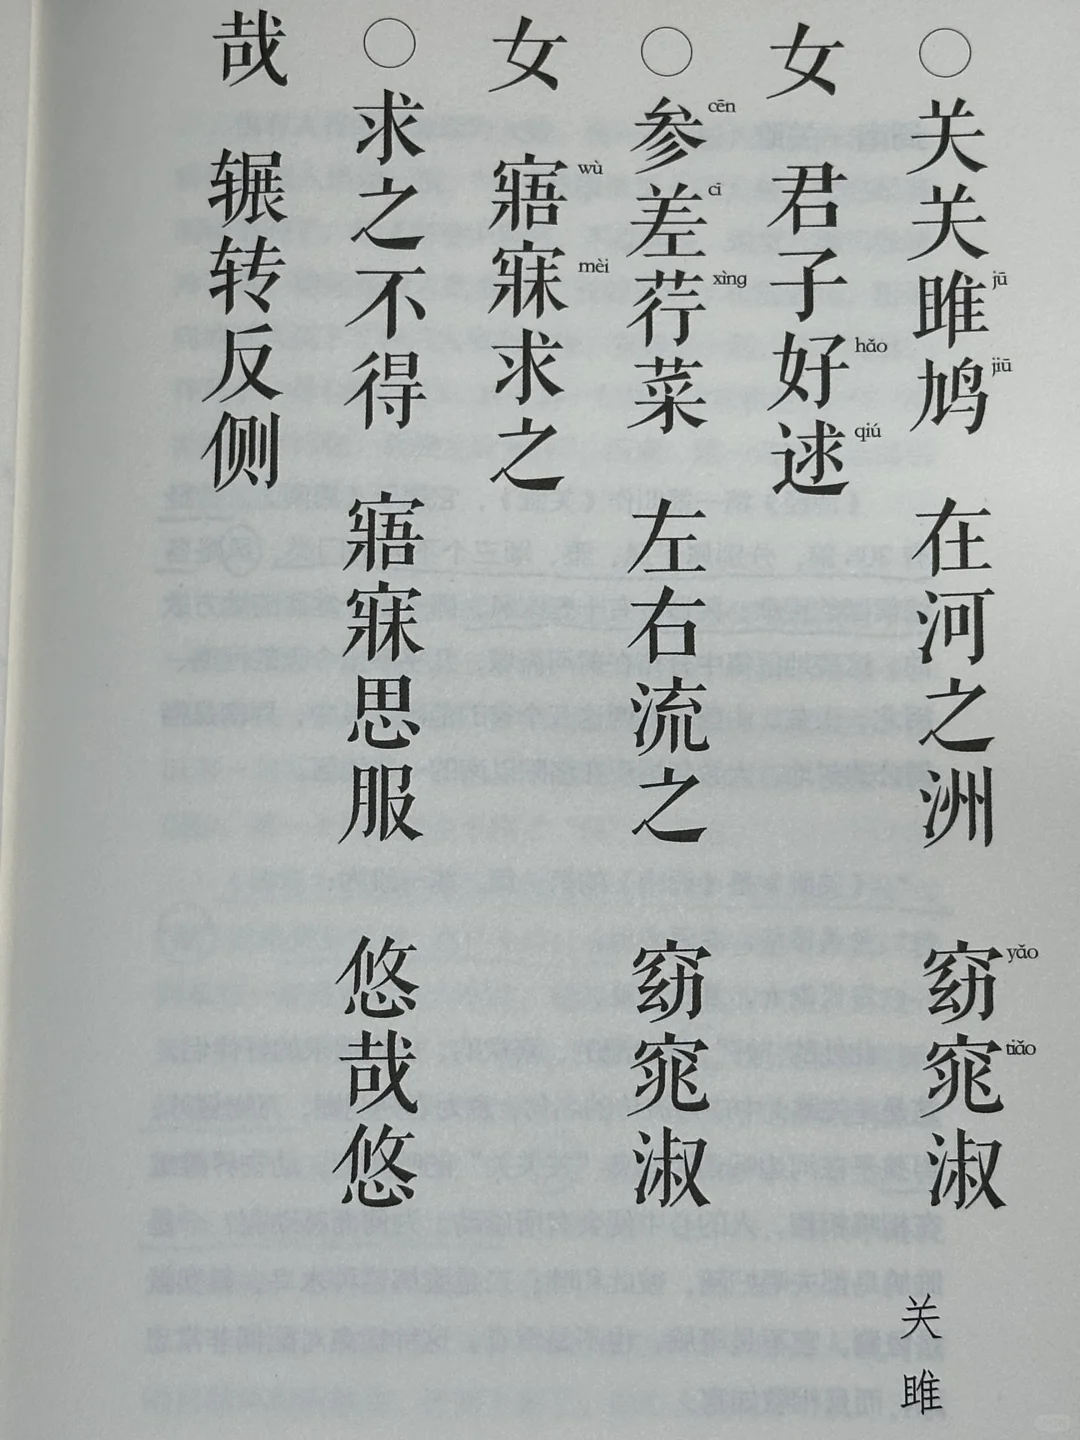 关雎
〇关关雎鸠 在河之洲 窈窕淑
女 君子好逑
〇参差荇菜 左右流之 窈窕淑
女 寤寐求之
〇求之不得 寤寐思服 悠哉悠
哉 辗转反侧
jū
jiū
yǎo
tiǎo
hǎo
qiú
cēn
cī
xìng
wù
mèi